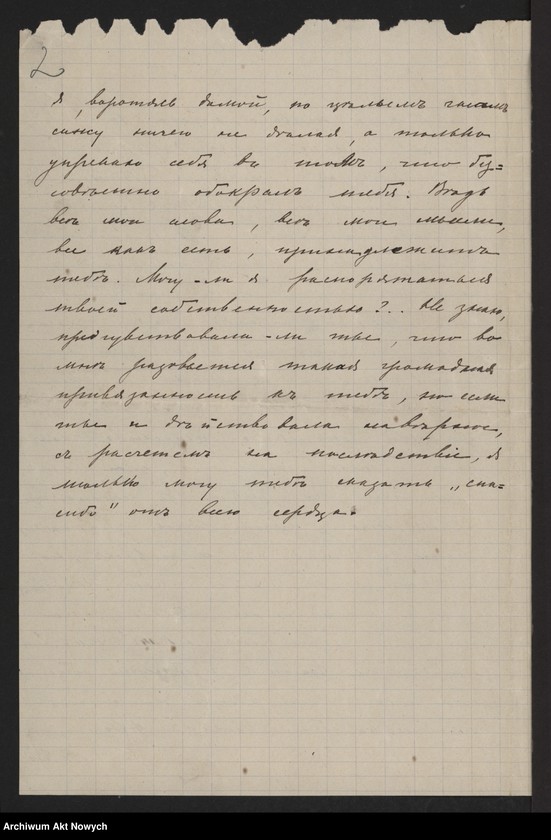 2
я, воротясь домой, по цѣлымъ часамъ
сижу ничего не дѣлая, а только
упрекаю себя въ томъ, что бу=
совѣстно обокралъ тебя. Вѣдь
всѣ мои слова, всѣ мои мысли,
все какъ есть, принадлежитъ
тебѣ. Могу-ли я распоряжаться
твоей собственностью?.. Не знаю,
предчувствовала-ли ты, что во
мнѣ разовьется такая громадная
привязанность къ тебѣ, но если
ты и дѣйствовала навѣрное,
съ расчетомъ на послѣдствіе, я
только могу тебѣ сказать „спа=
сибо" отъ всего сердца.
Archiwum Akt Nowych